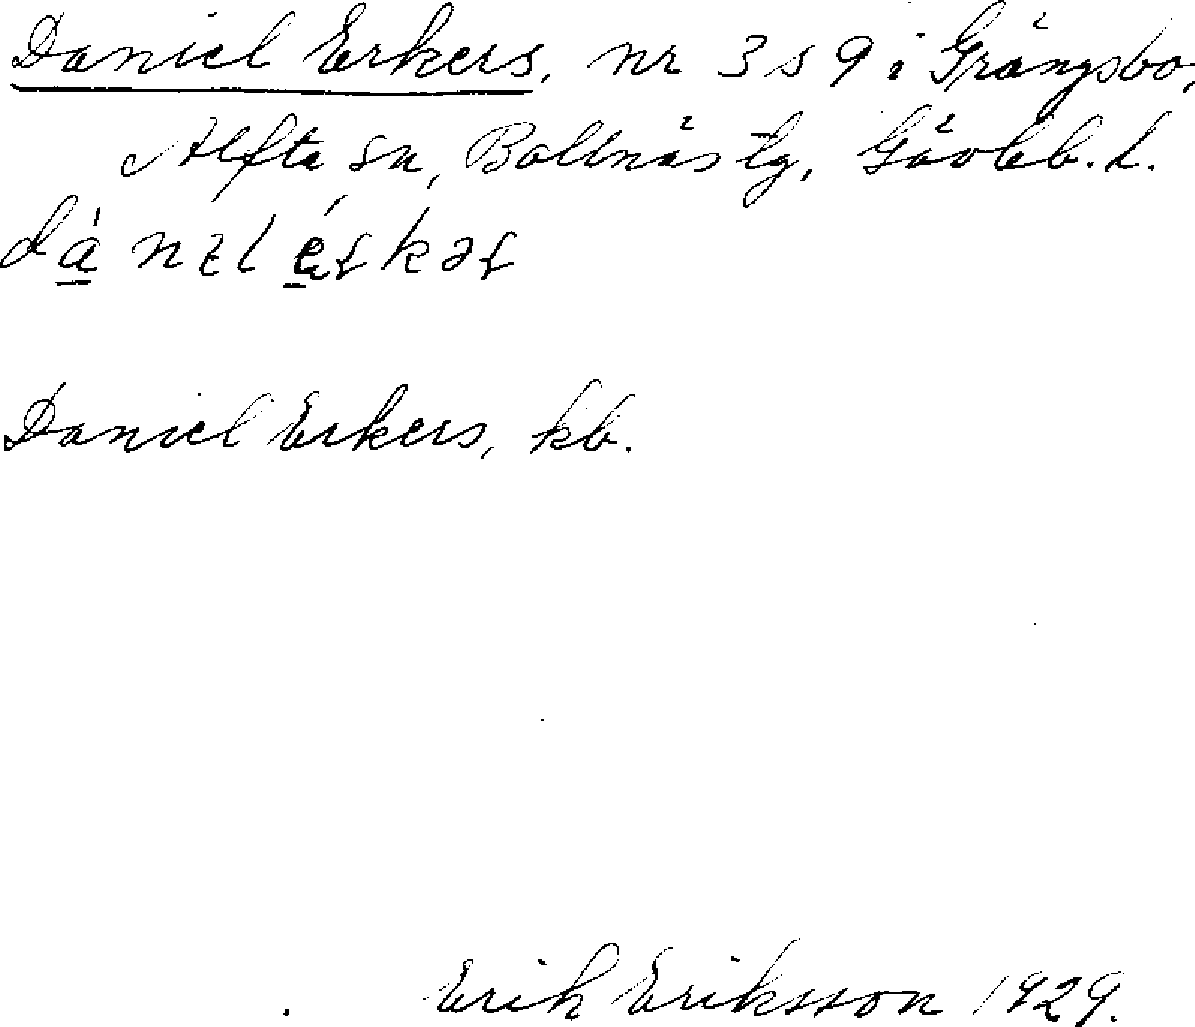 Daniel Erkers, nr 3 s 9 i Grängsbo,
Alfta sn, Bollnäs tg, Gävleb. l.
Daniel Erkers, kb.
Erik Eriksson 1929.